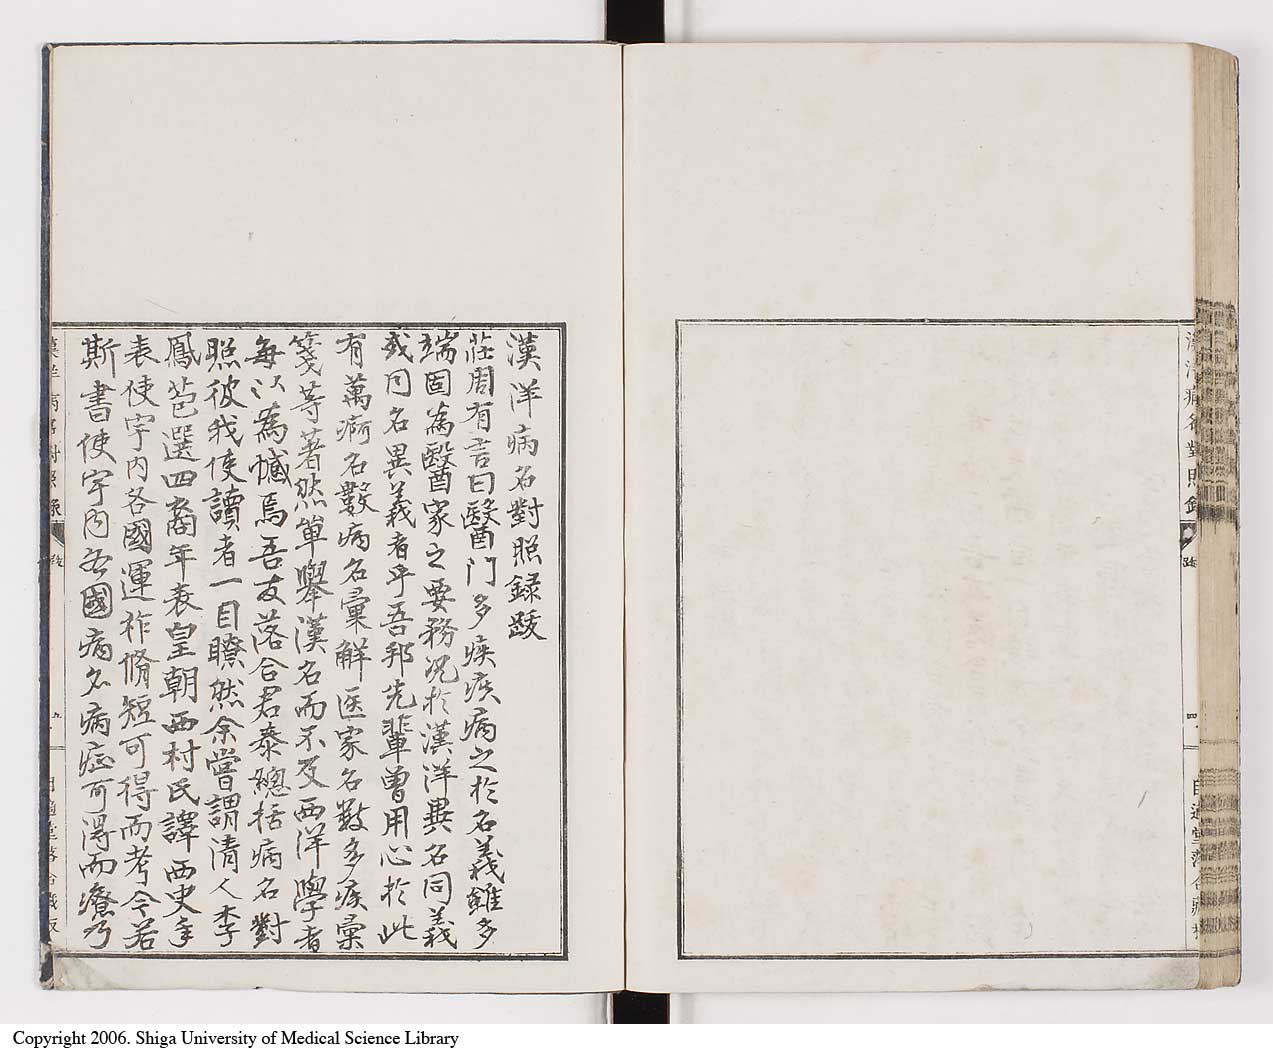 漢洋病名對照錄
跋
四
自適堂落合藏板
漢洋病名對照錄跋
莊周有言曰醫門多疾疾病之於名義雖多
端固為醫家之要務況於漢洋異名同義
或同名異義者乎吾邦先輩曾用心於此
有萬痾名數病名彙解医家名數多疾彙
箋等著然單舉漢名而不及西洋學者
每以為憾焉吾友落合君泰總括病名對
照彼我使讀者一目瞭然余嘗謂清人李
鳳苞選四裔年表皇朝西村氏譯西史年
表使宇內各國運祚脩短可得而考今若
斯書使宇內各國病名病症可得而療乃
漢洋病名對照錄
跋
五
自適堂落合藏板
Copyright 2006. Shiga University of Medical Science Library